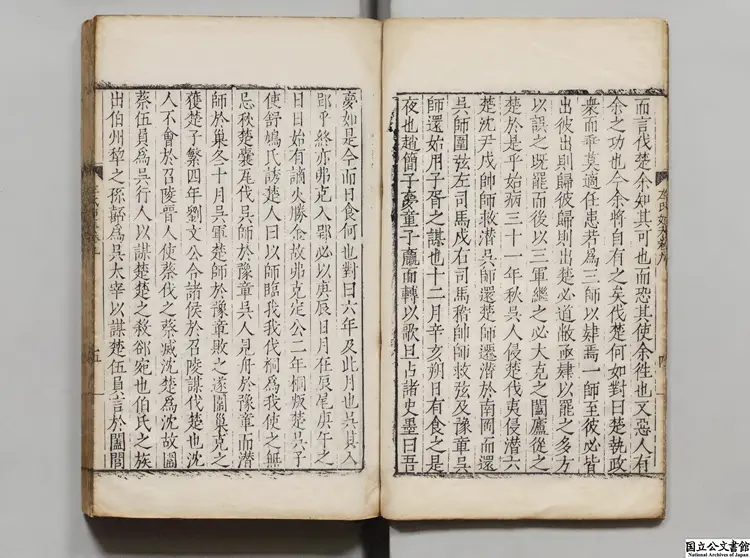 而言伐楚余知其可也而恐其使余徃也又惡人有
余之功也今余將自有之矣伐楚何如對曰楚執政
衆而乖莫適任患若爲三師以肄焉一師至彼必皆
出彼出則歸彼歸則出楚必道敝亟肄以罷之多方
以誤之旣罷而後以三軍繼之必大克之闔廬從之
楚於是乎始病三十一年秋吳人侵楚伐夷侵潜六
楚沈尹戌帥師救潜吳師還楚師遷潜於南岡而還
吳師圍弦左司馬戌右司馬稽帥師救弦及豫章吳
師還始用子胥之謀也十二月辛亥朔日有食之是
夜也趙簡子夢童子臝而轉以歌旦占諸史墨曰吾
夢如是今而日食何也對曰六年及此月也吳其入
郢乎終亦弗克入郢必以庚辰日月在辰尾庚午之
日日始有謫火勝金故弗克定公二年桐叛楚吳子
使舒鳩氏誘楚人曰以師臨我我伐桐爲我使之無
忌秋楚囊瓦伐吳師於豫章吳人見舟於豫章而潜
師於巢冬十月吳軍楚師於豫章敗之遂圍巢克之
獲楚子繁四年劉文公合諸侯於召陵謀伐楚也沈
人不會於召陵晉人使蔡伐之蔡滅沈楚爲沈故圍
蔡伍員爲吳行人以謀楚楚之殺郤宛也伯氏之族
出伯州犂之孫嚭爲吳太宰以謀楚伍員言於闔閭
五
国立公文書館
National Archives of Japan